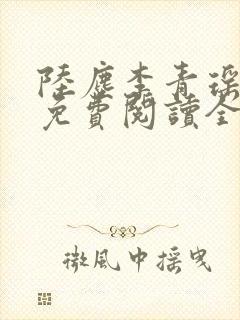 陸塵李青瑶
免費閱讀全
微風中搖曳